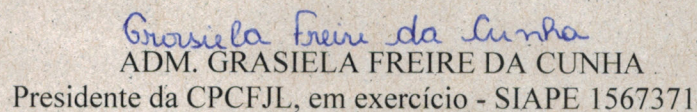 Grasiela Freire da Cunha
ADM. GRASIELA FREIRE DA CUNHA
Presidente da CPCFJL, em exercício - SIAPE 1567371